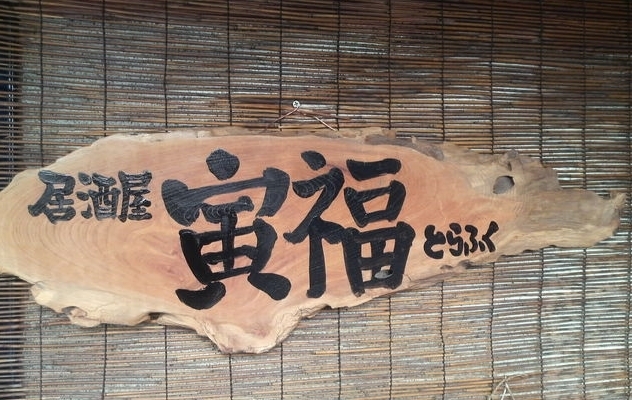 居酒屋 寅福 とらふく